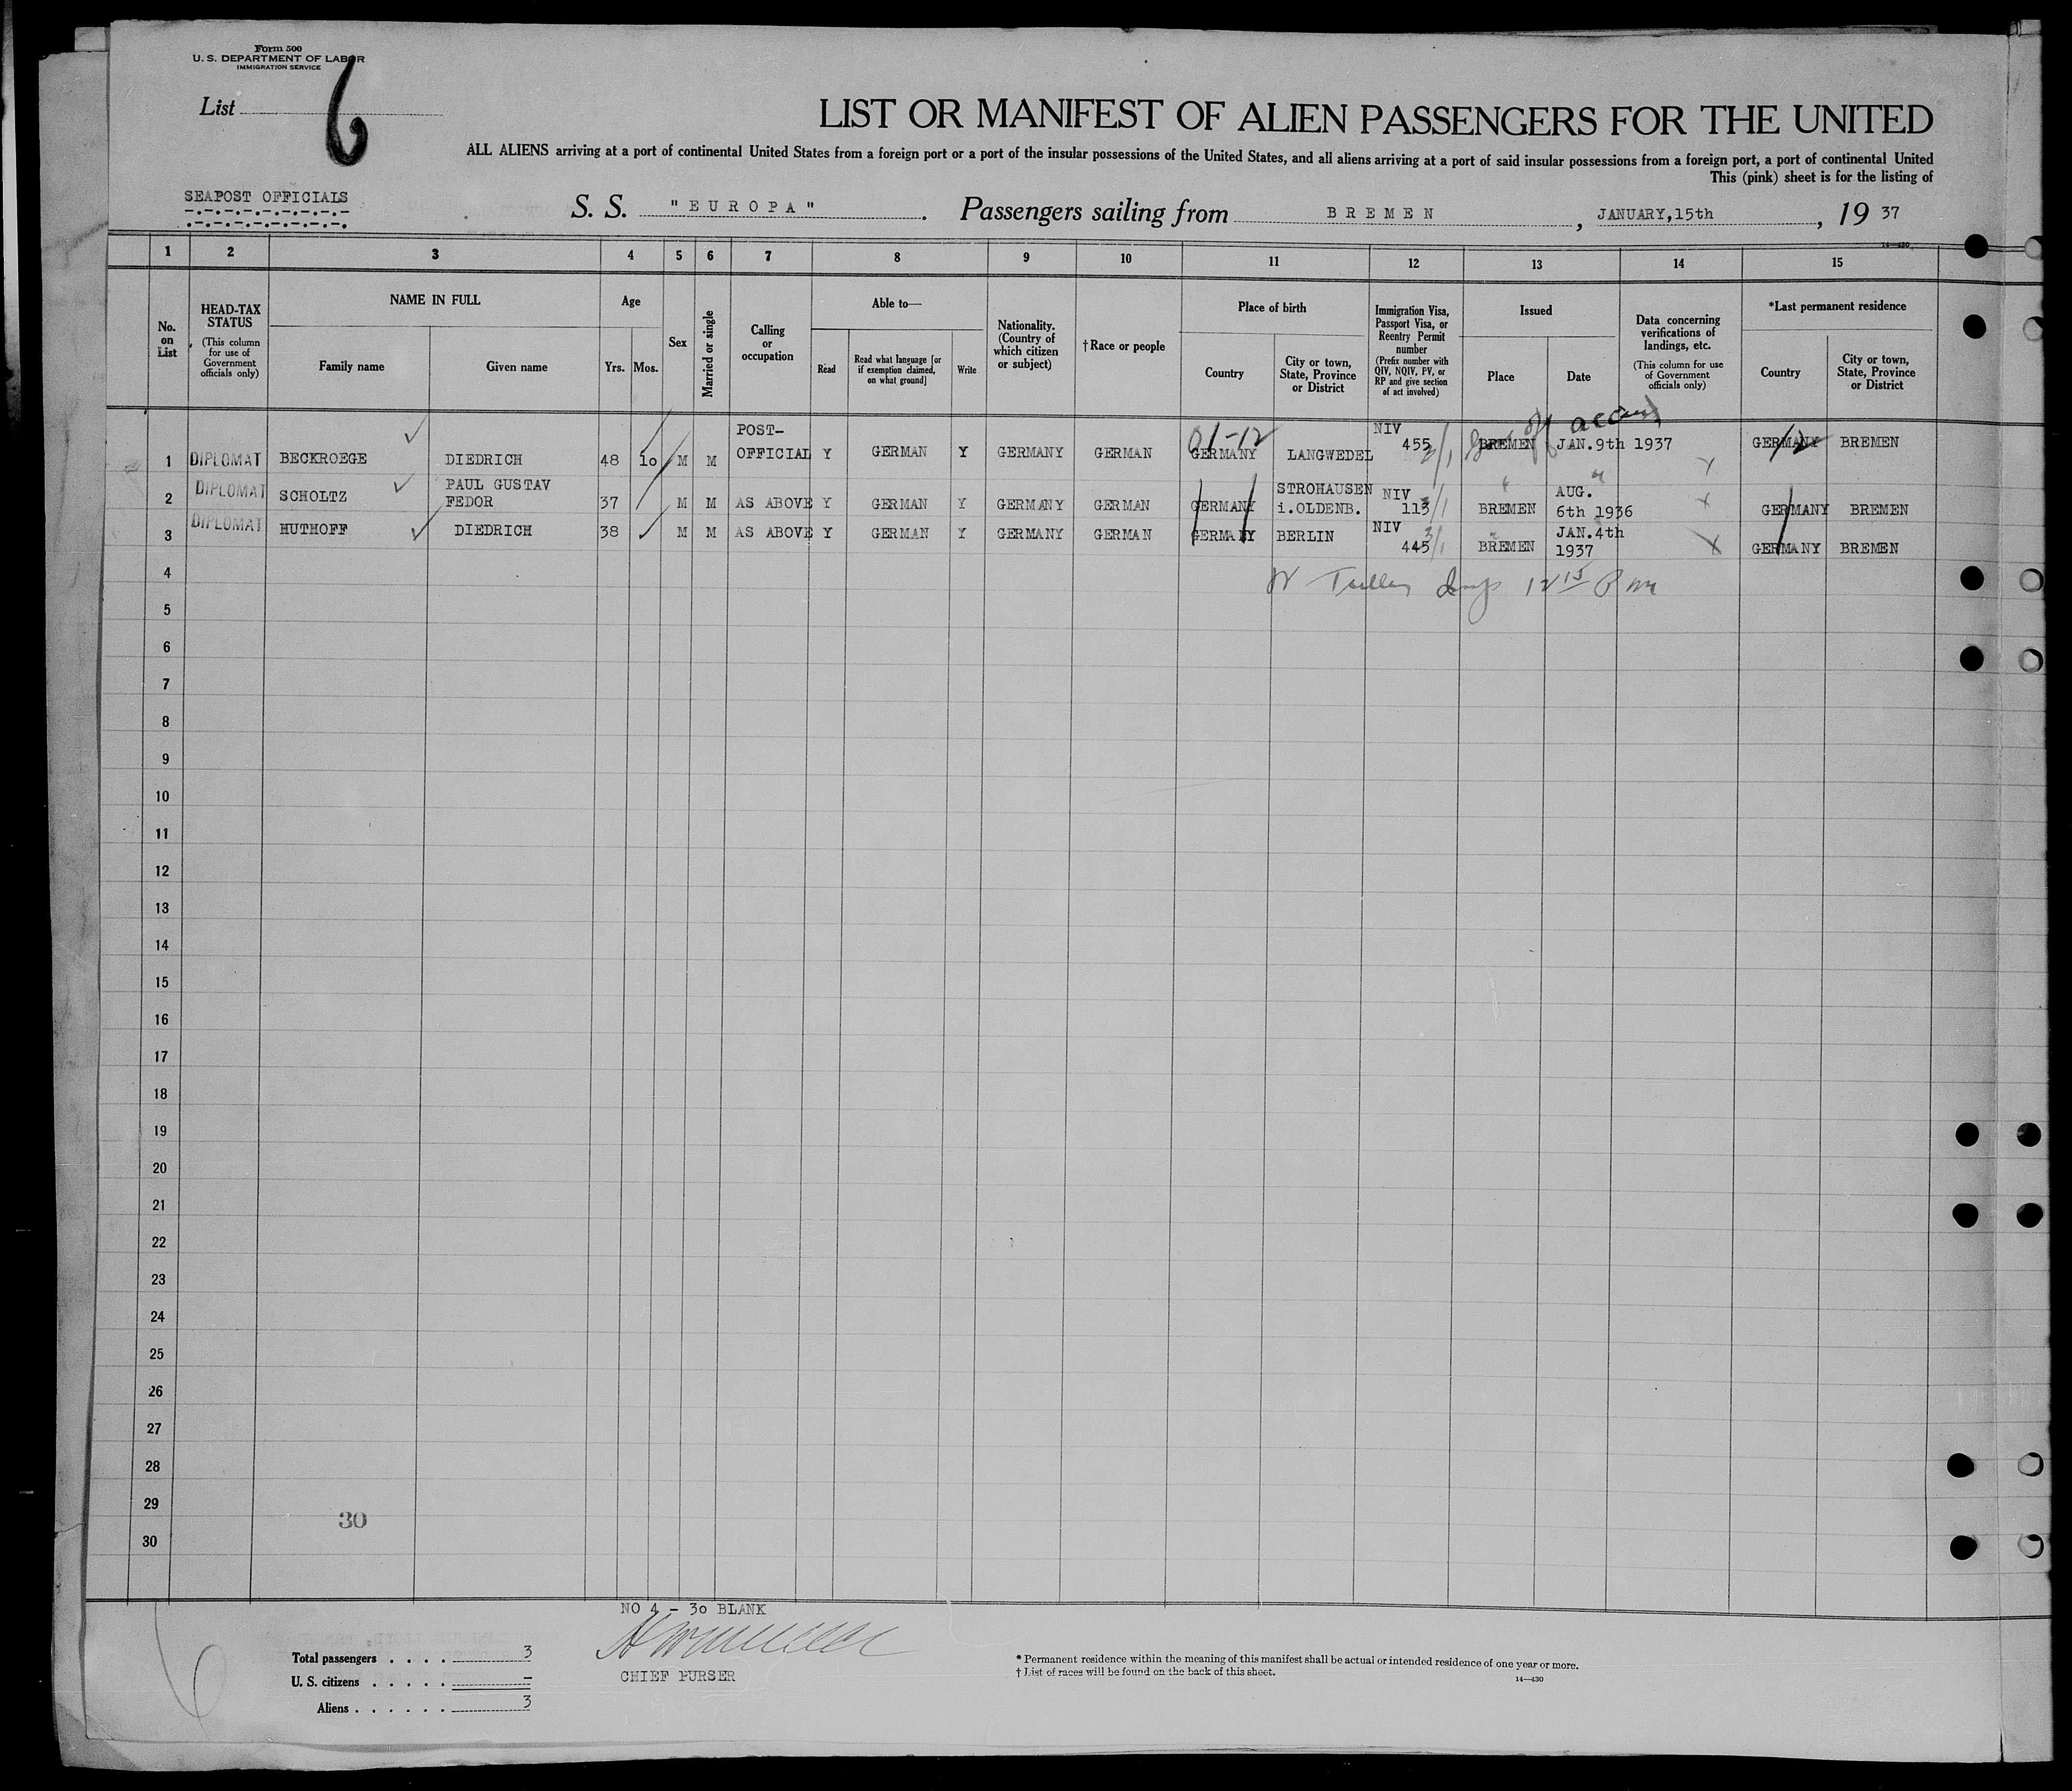 Form 500
U. S. DEPARTMENT OF LABOR
IMMIGRATION SERVICE
List 6
LIST OR MANIFEST OF ALIEN PASSENGERS FOR THE UNITED
ALL ALIENS arriving at a port of continental United States from a foreign port or a port of the insular possessions of the United States, and all aliens arriving at a port of said insular possessions from a foreign port, a port of continental United
This (pink) sheet is for the listing of
SEAPOST OFFICIALS
S. S. "EUROPA". Passengers sailing from BREMEN, JANUARY,15th, 19 37
14—430
1 2 3 4 5 6 7 8 9 10 11 12 13 14 15
No. on List
HEAD-TAX STATUS
(This column for use of Government officials only)
NAME IN FULL
Family name
Given name
Age
Yrs.
Mos.
Sex
Married or single
Calling or occupation
Able to—
Read
Read what language [or if exemption claimed, on what ground]
Write
Nationality. (Country of which citizen or subject)
†Race or people
Place of birth
Country
City or town, State, Province or District
Immigration Visa, Passport Visa, or Reentry Permit number
(Prefix number with QIV, NQIV, PV, or RP and give section of act involved)
Issued
Place
Date
Data concerning verifications of landings, etc.
(This column for use of Government officials only)
*Last permanent residence
Country
City or town, State, Province or District
1 DIPLOMAT BECKROEGE DIEDRICH 48 10 M M POST-OFFICIAL Y GERMAN Y GERMANY GERMAN GERMANY LANGWEDEL NIV 455 3/1 BREMEN JAN.9th 1937 GERMANY BREMEN
2 DIPLOMAT SCHOLTZ PAUL GUSTAV FEDOR 37 M M AS ABOVE Y GERMAN Y GERMANY GERMAN GERMANY STROHAUSEN i.OLDENB. NIV 113 3/1 BREMEN AUG. 6th 1936 GERMANY BREMEN
3 DIPLOMAT HUTHOFF DIEDRICH 38 M M AS ABOVE Y GERMAN Y GERMANY GERMAN GERMANY BERLIN NIV 445 3/1 BREMEN JAN.4th 1937 GERMANY BREMEN
4
5
6
7
8
9
10
11
12
13
14
15
16
17
18
19
20
21
22
23
24
25
26
27
28
29
30
30
NO 4 - 30 BLANK
CHIEF PURSER
Total passengers . . . . 3
U. S. citizens . . . . . —
Aliens . . . . . . 3
* Permanent residence within the meaning of this manifest shall be actual or intended residence of one year or more.
† List of races will be found on the back of this sheet.
14—430
6